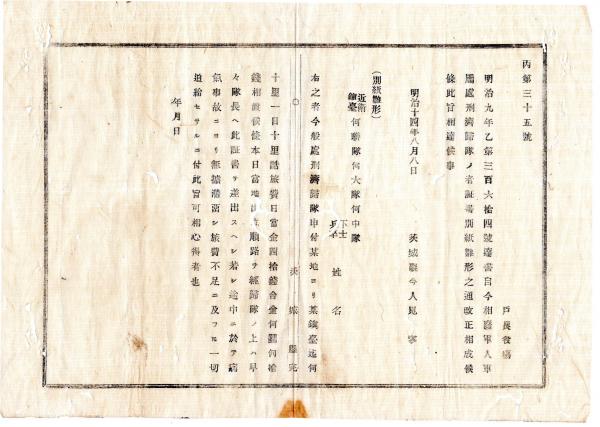 丙第三十五號
戸長役場
明治九年乙第三百六拾四號達書自今相廢軍人軍
屬處刑濟歸隊ノ者証書別紙雛形之通改正相成候
條此旨相達候事
明治十四年八月八日
茨城縣令人見寧
(別紙雛形)
近衛
鎮臺
何聯隊何大隊何中隊
下士
兵卒
姓名
右之者今般處刑濟歸隊申付某地ヨリ某鎮臺迄何
十里一日十里詰旅費日當金四拾錢合金何圓何拾
錢相渡候條本日當地出立順路ヲ經歸隊ノ上ハ早
々隊長ヘ此証書ヲ差出スヘシ若シ途中ニ於テ病
氣事故ニヨリ無據滯留シ旅費不足ニ及フモ一切
追給セサルニ付此旨可相心得者也
年月日
茨城縣